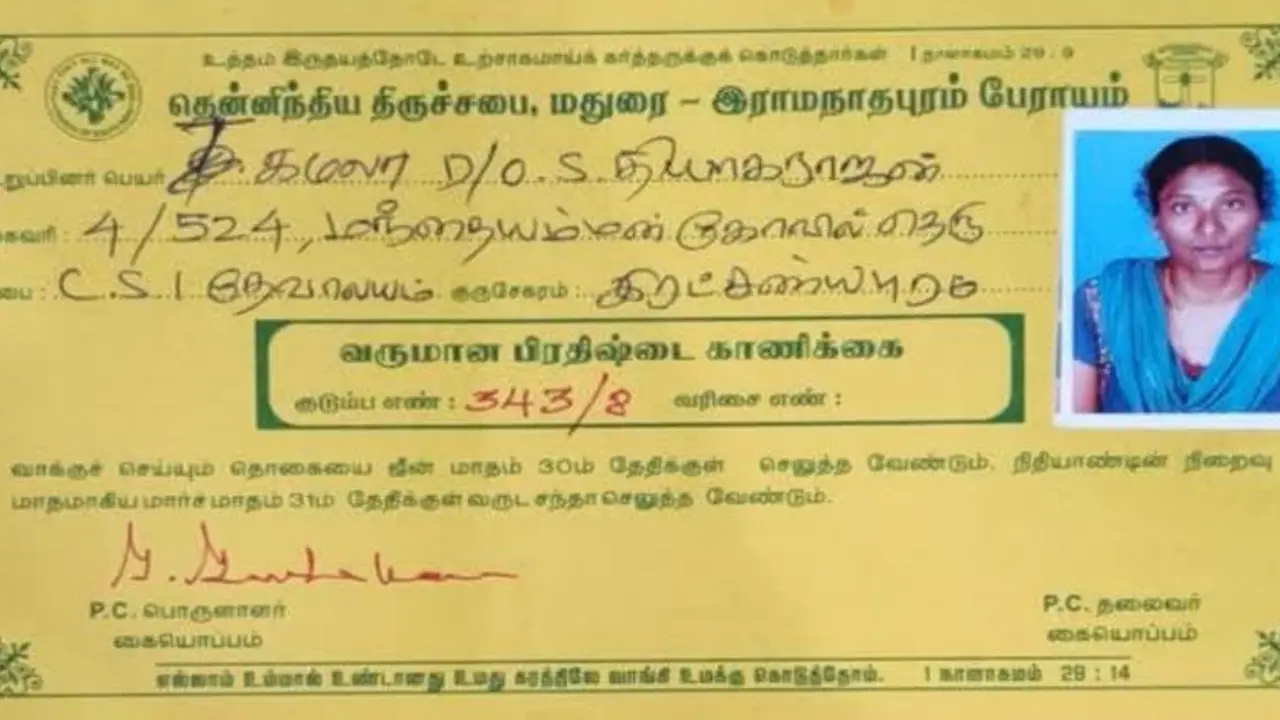 உத்தம இருதயத்தோடே உற்சாகமாய்க் கர்த்தருக்குக் கொடுத்தார்கள் 1 நாளாகமம் 29 : 9
தென்னிந்திய திருச்சபை, மதுரை – இராமநாதபுரம் பேராயம்
உறுப்பினர் பெயர் T. கமலா D/O. S. தியாகராஜன்
முகவரி : 4/524, மந்தையம்மன் கோவில் தெரு
சபை : C.S.I தேவாலயம் குருசேகரம் : இரட்சண்யபுரம்
வருமான பிரதிஷ்டை காணிக்கை
குடும்ப எண் : 343/8 வரிசை எண் :
வாக்குச் செய்யும் தொகையை ஜீன் மாதம் 30ம் தேதிக்குள் செலுத்த வேண்டும். நிதியாண்டின் நிறைவு
மாதமாகிய மார்ச் மாதம் 31ம் தேதிக்குள் வருட சந்தா செலுத்த வேண்டும்.
P.C. பொருளாளர் P.C. தலைவர்
கையொப்பம் கையொப்பம்
எல்லாம் உம்மால் உண்டானது உமது கரத்திலே வாங்கி உமக்கு கொடுத்தோம். 1 நாளாகமம் 29 : 14